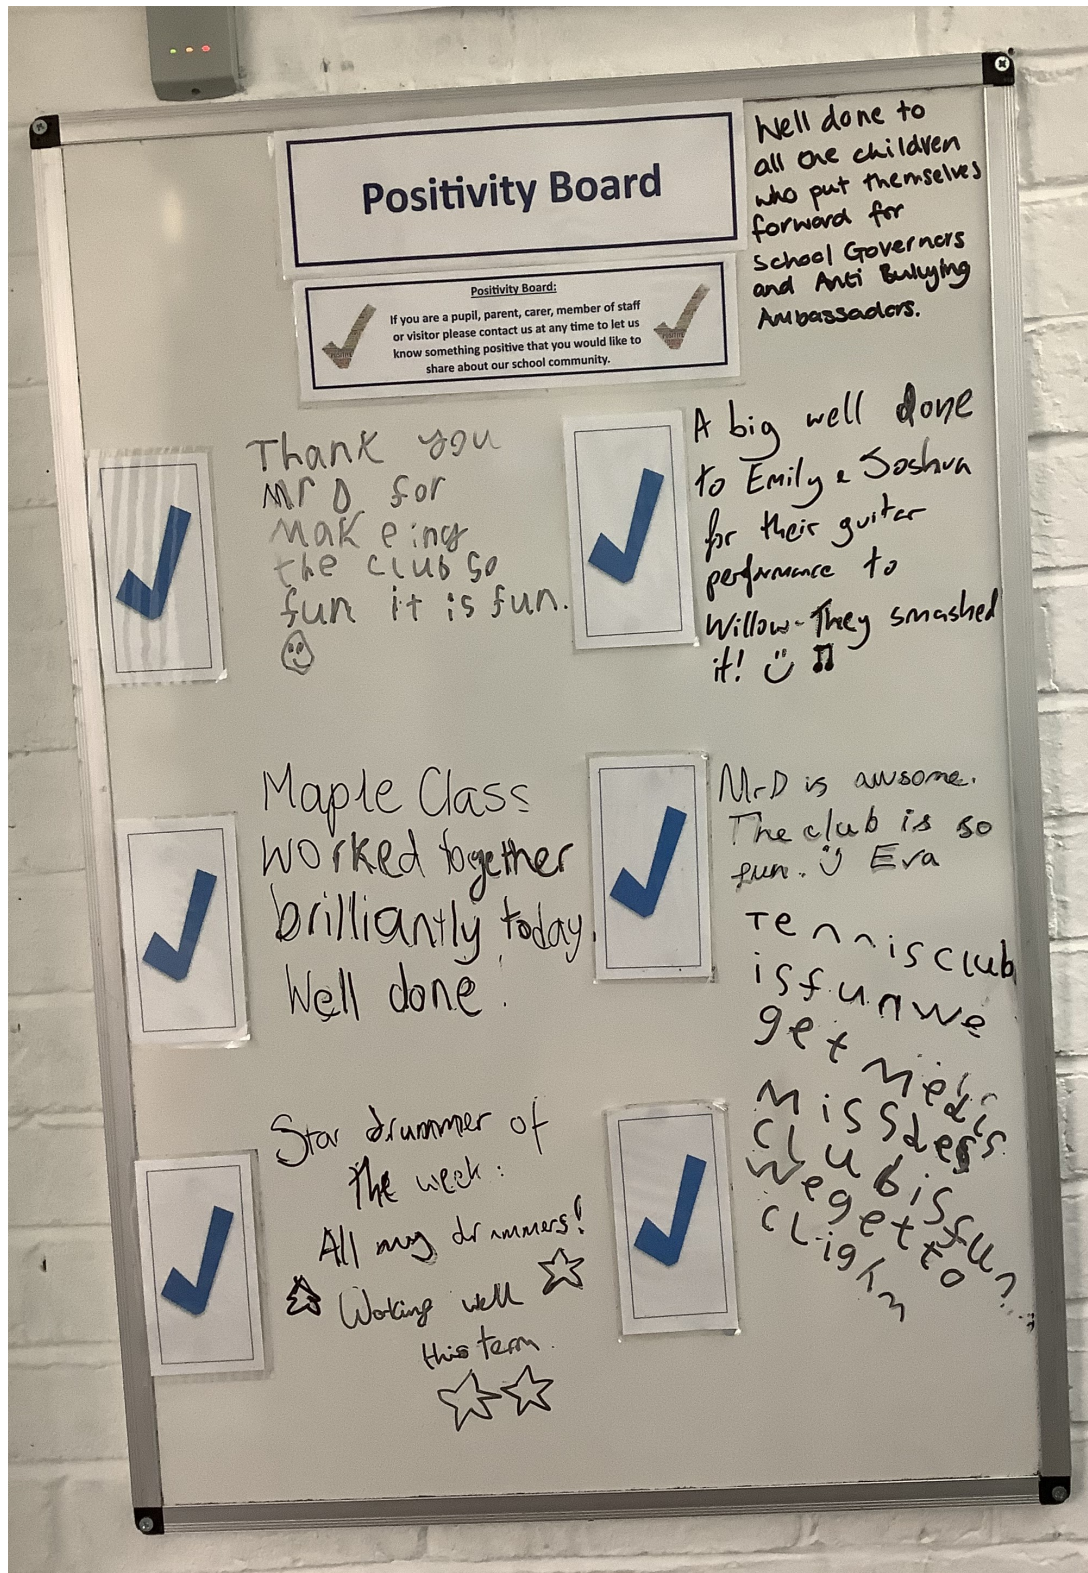 Positivity Board
Positivity Board:
If you are a pupil, parent, carer, member of staff
or visitor please contact us at any time to let us
know something positive that you would like to
share about our school community.
Well done to
all the children
who put themselves
forward for
School Governers
and Anti Bullying
Ambassadors.
Thank you
Mr D for
makeing
the club so
fun it is fun.
A big well done
to Emily & Joshua
for their guitar
performance to
Willow - They smashed
it!
Maple Class
worked together
brilliantly today.
Well done!
Mr D is awsome.
The club is so
fun. Eva
Tennis club
is fun we
get
Miss
club is fun
we get to
Star drummer of
the week:
All my drummers!
Working well
this term.